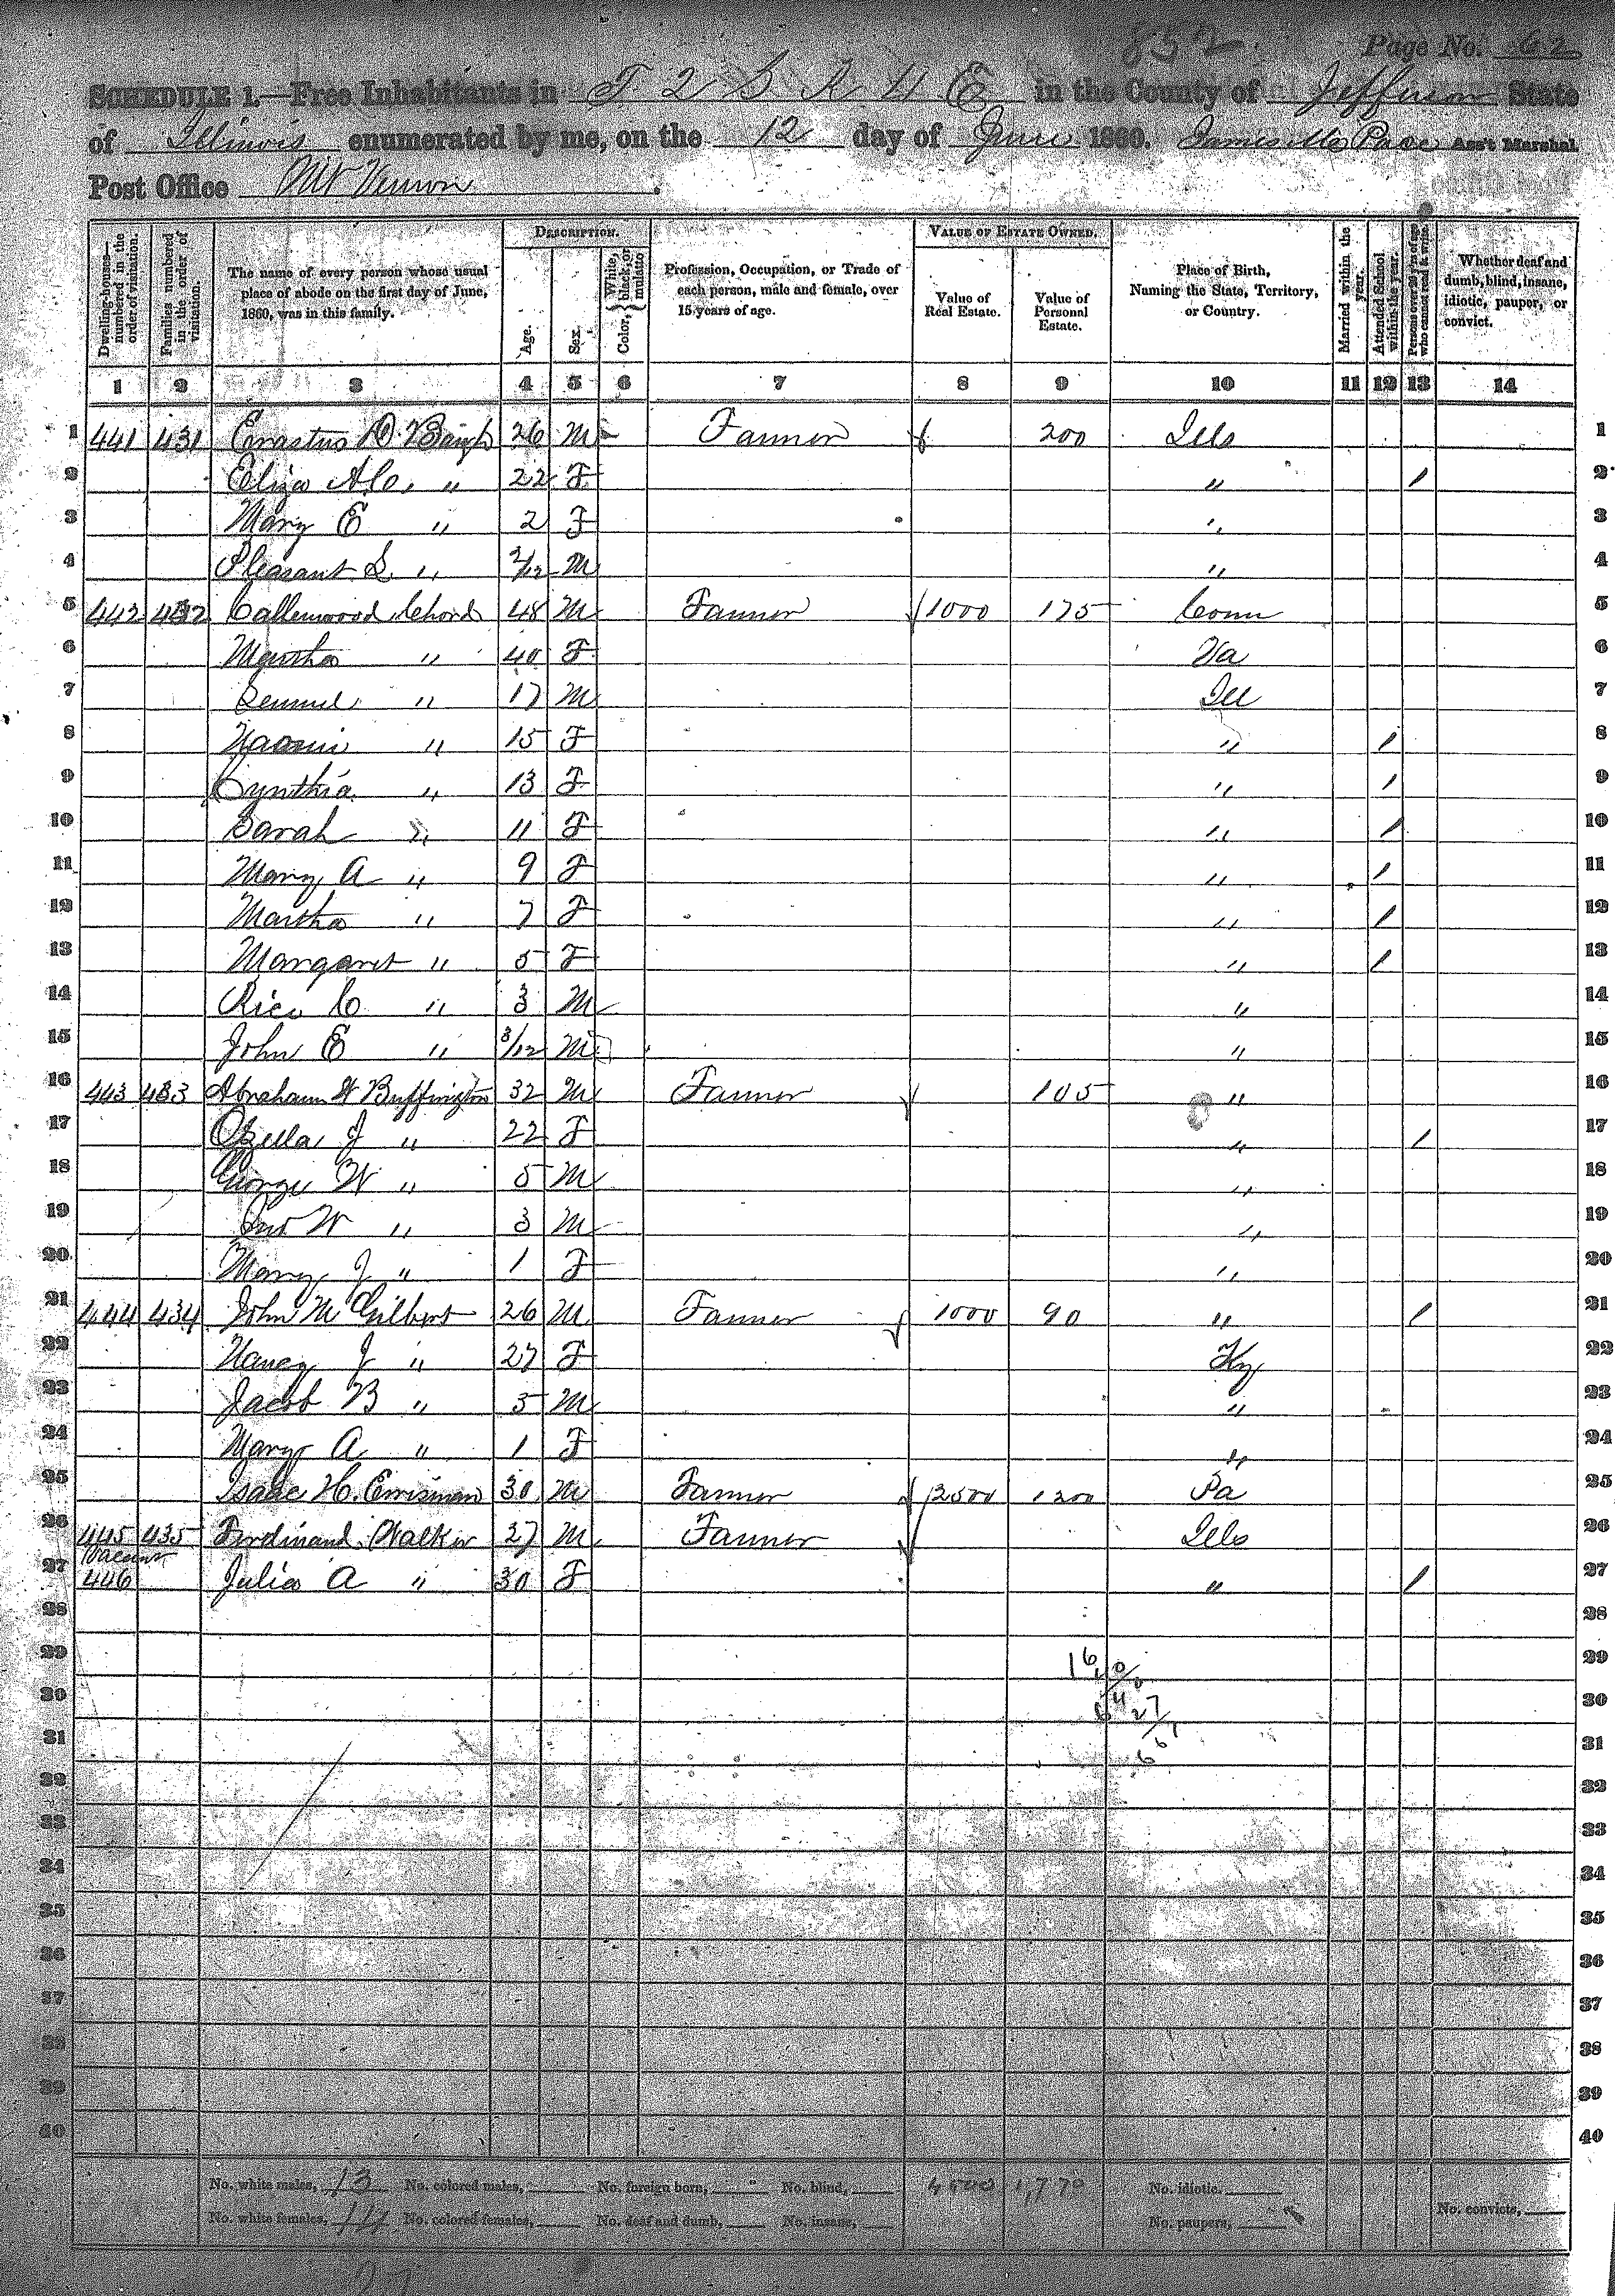 852. Page No. 62
SCHEDULE 1.—Free Inhabitants in T 2 S R 4 E in the County of Jefferson State
of Illinois enumerated by me, on the 12 day of June 1860. James M Pace Ass't Marshal.
Post Office Mt Vernon.
Dwelling-houses—numbered in the order of visitation.
Families numbered in the order of visitation.
The name of every person whose usual place of abode on the first day of June, 1860, was in this family.
DESCRIPTION.
Age.
Sex.
Color, { White, black, or mulatto
Profession, Occupation, or Trade of each person, male and female, over 15 years of age.
VALUE OF ESTATE OWNED.
Value of Real Estate.
Value of Personal Estate.
Place of Birth, Naming the State, Territory, or Country.
Married within the year.
Attended School within the year.
Persons over 20 y'rs of age who cannot read & write.
Whether deaf and dumb, blind, insane, idiotic, pauper, or convict.
1 2 3 4 5 6 7 8 9 10 11 12 13 14
1 441 431 Erastus D. Baugh 26 M Farmer 200 Ills 1
2 Eliza " 22 F " / 2
3 Mary E " 2 F " 3
4 Pleasant S. " 2/12 M " 4
5 442 432 Chord 48 M Farmer 1000 175 Conn 5
6 Martha " 40 F Va 6
7 Lemuel " 17 M Ill 7
8 Naomi " 15 F " / 8
9 Cynthia " 13 F " / 9
10 Sarah " 11 F " / 10
11 Mary A " 9 F " / 11
12 Martha " 7 F " / 12
13 Margaret " 5 F " / 13
14 Rice C " 3 M " 14
15 John E " 3/12 M " 15
16 443 433 Abraham W Buffington 32 M Farmer 105 " 16
17 Ozella J " 22 F " / 17
18 George W " 5 M " 18
19 W " 3 M " 19
20 Mary J " 1 F " 20
21 444 434 John M Gilbert 26 M Farmer 1000 90 " / 21
22 Nancy J " 27 F Ky 22
23 Jacob B " 5 M " 23
24 Mary A " 1 F " 24
25 Isaac H. Errisman 30 M Farmer 2500 1200 Pa 25
26 445 435 Ferdinand Walker 27 M Farmer Ills 26
Vacant
27 446 Julia A " 30 F " / 27
28 28
29 29
30 30
31 31
32 32
33 33
34 34
35 35
36 36
37 37
38 38
39 39
40 40
No. white males, 13 No. colored males, No. foreign born, No. blind, 4500 1,770 No. idiotic.
No. white females, 14 No. colored females, No. deaf and dumb, No. insane, No. paupers, No. convicts,
27